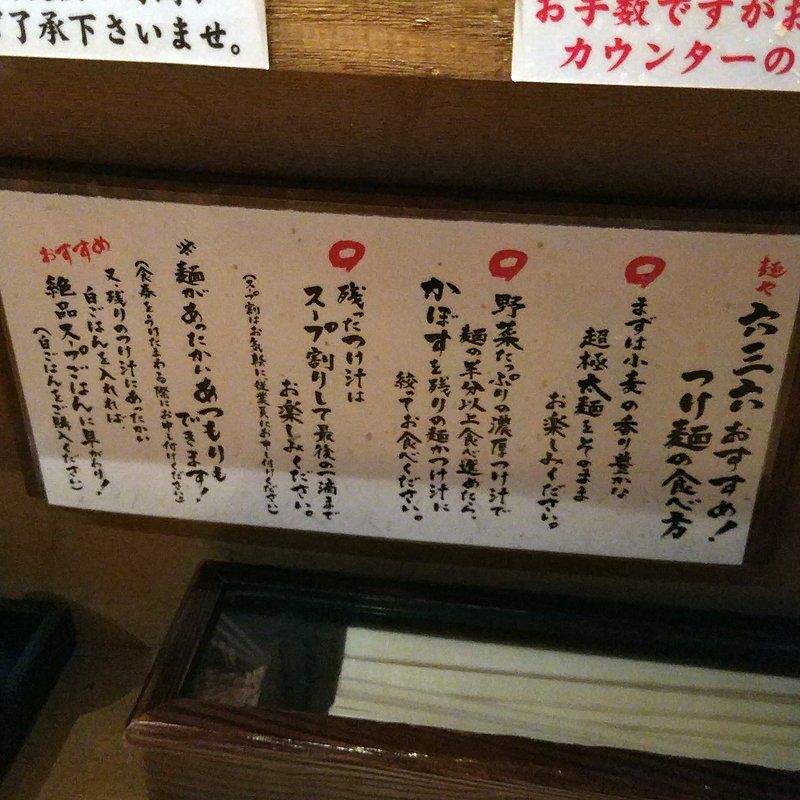 了承下さいませ。
お手数ですがお
カウンターの
麺や
六三六おすすめ!
つけ麺の食べ方
まずは小麦の香り豊かな
超極太麺をそのまま
お楽しみください。
野菜たっぷりの濃厚つけ汁で
麺の半分以上食べ進めたら、
かぼすを残りの麺かつけ汁に
絞ってお食べください。
残ったつけ汁は
スープ割りして最後の一滴まで
お楽しみください。
(スープ割はお気軽に従業員にお申し付けください)
※麺があったかいあつもりも
できます!
(食券をうけたまわる際にお申し付けください)
又、残りのつけ汁にあったかい
白ごはんを入れれば、
おすすめ
絶品スープごはんに早がわり!
(白ごはんをご購入ください)